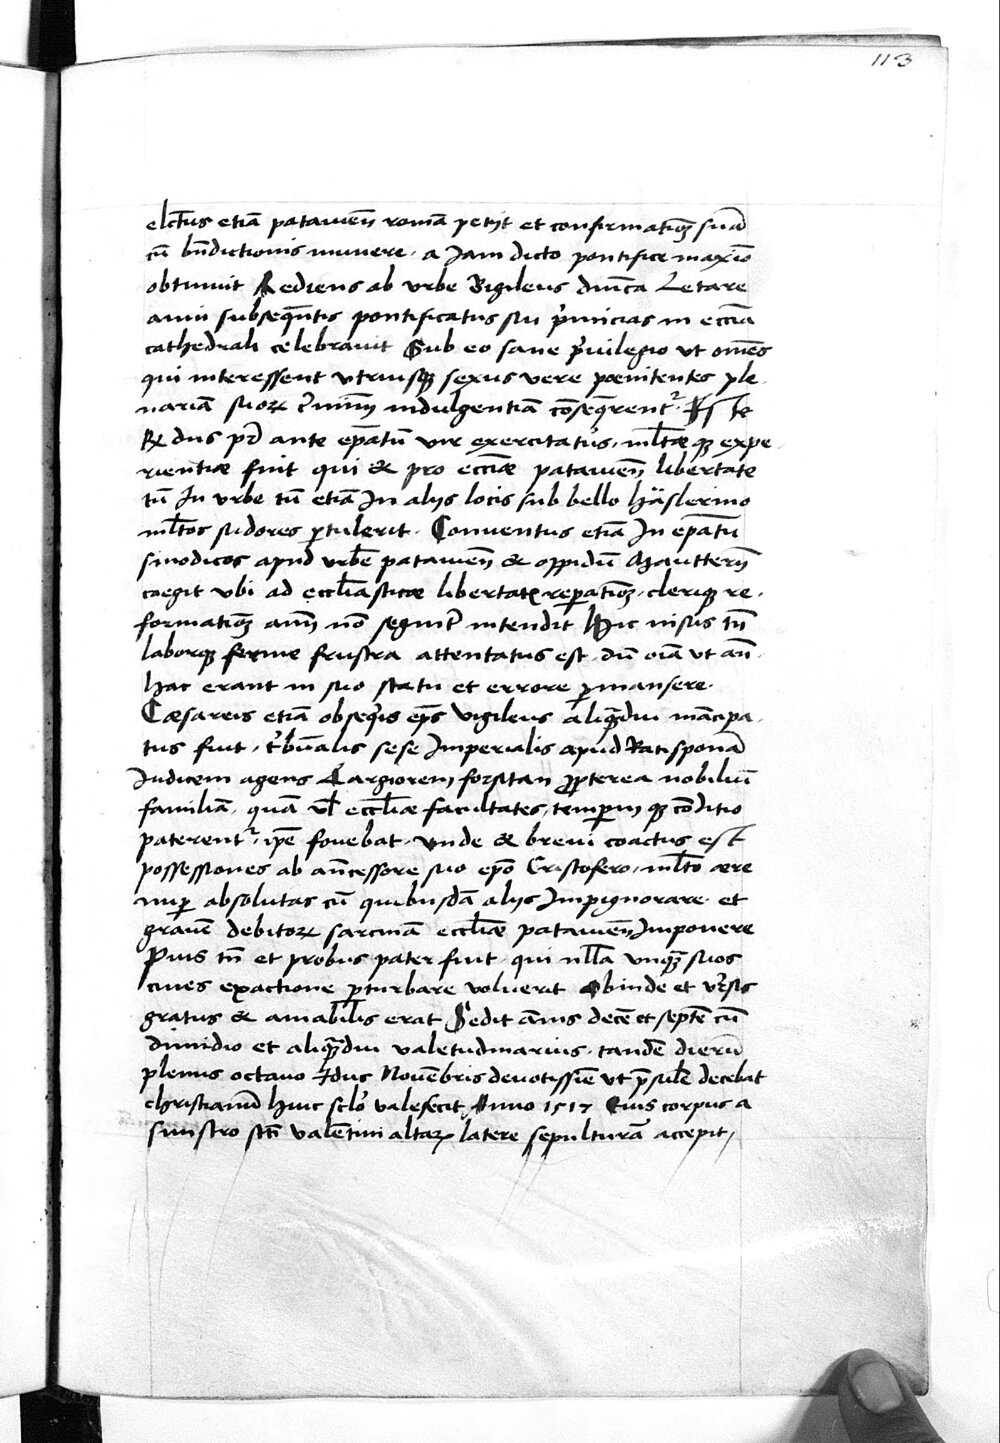 113
elctus etiā patauieñ romā petijt et confirmatioȝ suā
cū bñdictionis munere · a Jam dicto pontifice maxīo
obtinuit Rediens ab vrbe Vigileus dnīca Letare
anni subseqn̄tis pontificatus sui p̄micias in ecciā
cathedrali celebrauit Sub eo sane p̄uilegio vt om̄es
qui interessent vtriusqȝ sexus vere pœnitentes ple
nariā suoꝝ indulgentiā cōseq̄rent᷑
dns ante ep̄atū vir exercitatus, ml̄tæ qȝ expe
rientiæ fuit qui & pro ecciæ patauieñ libertate
tū In vrbe tū etiā In alijs locis sub bello häslerino
ml̄tos sudores ꝑtulerit · Conuentus etiā In ep̄atu
sinodicos apud vrbē patauieñ & oppidū Mautterñ
coegit vbi ad ecclīasticæ libertatꝭ reꝑatioȝ, cleriqȝ re
formatioȝ nō intendit Hic nisus tn̄
laborqȝ ferme frustra attentatus est · dū oīa vt añ
hac erant in suo statu et errore ꝑmansere ·
Cæsareis etiā obseq̄is ep̄s Vigileus aliqn̄diu mācipa
tus fuit, t̓bunalis sese Imperialis apud Ratisponā
Iudicem agens Largiorem forsitan ꝓpterea nobiliū
familiā, quā vl̄ eccliæ facultates, temporū qȝ cōditio
paterent᷑, ip̄e fouebat · vnde & breui coactus est
possessiones ab añcessore suo ep̄o Cristofero, ml̄to ære
nuꝑ absolutas cū quibusdā alijs Impignorare · et
grauē debitoꝝ sarcinā eccliæ patauieñ Imponere
Pius tn̄ et probus pater fuit qui nll̄a vnqȝ suos
ciues exactione ꝑturbare voluerit Obinde et
gratus & amabilis erat Sedit ānis decē et septē cū
dimidio et aliqn̄diu valetudinarius · tandē dierū
plenus octauo Idus Nouēbris deuotissīe vt p̄sulē decebat
christianū huic sclo᷑ valefecit Anno 1517 Eius corpus a
sinistro sct̄i Valentini altaꝝ latere sepulturā accepit,